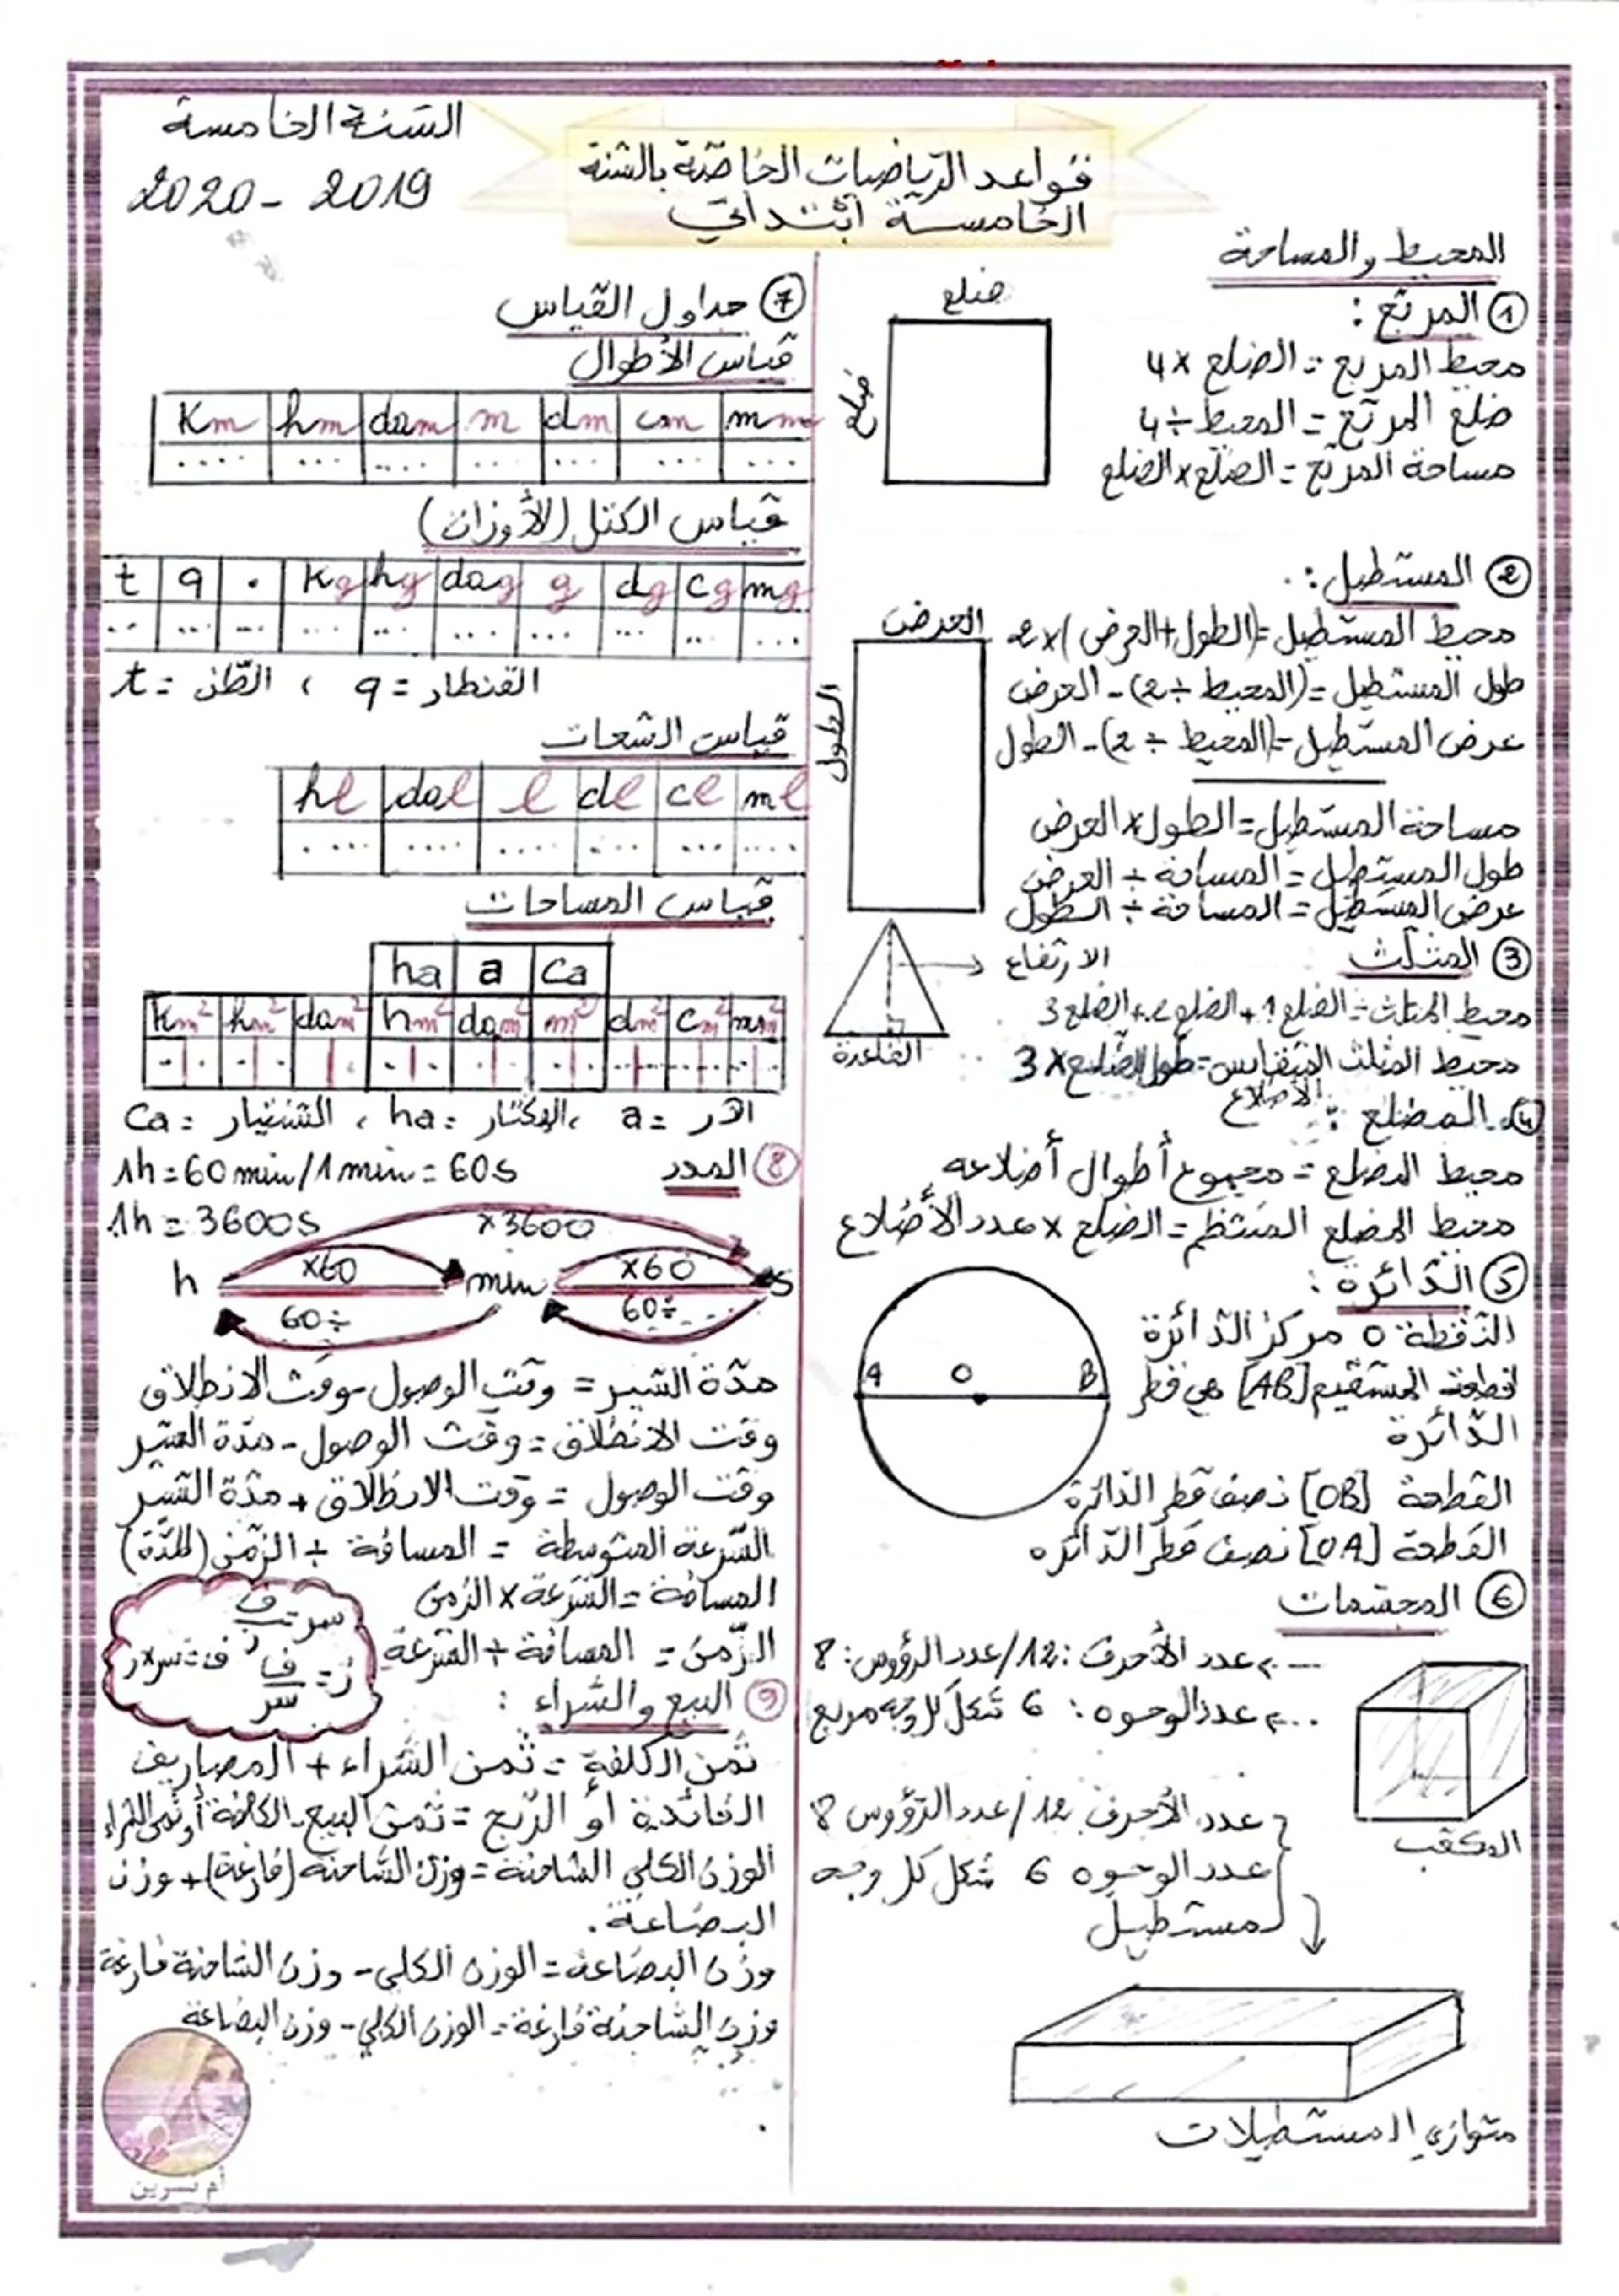 السّنة الخامسة
2019 - 2020
قواعد الرّياضيات الخاصّة بالسّنة
الخامسة ابتدائي
المحيط والمساحة
① المربّع :
ضلع
ضلع
محيط المربع = الضلع × 4
ضلع المربّع = المحيط ÷ 4
مساحة المربّع = الضلع × الضلع
② المستطيل :
العرض
الطول
محيط المستطيل = (الطول + العرض) × 2
طول المستطيل = (المحيط ÷ 2) - العرض
عرض المستطيل = (المحيط ÷ 2) - الطول
مساحة المستطيل = الطول × العرض
طول المستطيل = المسافة ÷ العرض
عرض المستطيل = المسافة ÷ الطول
③ المثلّث
الارتفاع
القاعدة
محيط المثلث = الضلع 1 + الضلع 2 + الضلع 3
محيط المثلث المتقايس = طول الضلع × 3
الأضلاع
④ المضلع :
محيط المضلع = مجموع أطوال أضلاعه
محيط المضلع المنتظم = الضلع × عدد الأضلاع
⑤ الدّائرة :
A O B
النّقطة O مركز الدّائرة
قطعة المستقيم [AB] هي قطر
الدّائرة
القطعة [OB] نصف قطر الدّائرة
القطعة [OA] نصف قطر الدّائرة
⑥ المجسّمات
عدد الأحرف : 12 / عدد الرّؤوس : 8
عدد الوجوه : 6 شكل كل وجه مربع
المكعّب
عدد الأحرف 12 / عدد الرّؤوس 8
عدد الوجوه 6 شكل كل وجه
مستطيل
متوازي المستطيلات
⑦ جداول القياس
قياس الأطوال
km hm dam m dm cm mm
قياس الكتل (الأوزان)
t q . kg hg dag g dg cg mg
القنطار = q ، الطّن = t
قياس السّعات
hl dal l dl cl ml
قياس المساحات
ha a ca
km² hm² dam² hm² dam² m² dm² cm² mm²
الآر = a ، الهكتار = ha ، السّنتيار = ca
⑧ المدد
1h = 60 min / 1 min = 60s
1h = 3600s
×3600
h ×60 min ×60 s
60÷ 60÷
مدّة السّير = وقت الوصول - وقت الانطلاق
وقت الانطلاق = وقت الوصول - مدّة السّير
وقت الوصول = وقت الانطلاق + مدّة السّير
السّرعة المتوسطة = المسافة ÷ الزّمن (المدّة)
المسافة = السّرعة × الزمن
الزّمن = المسافة ÷ السّرعة
سر = ف
ز
ز = ف
سر
ف = سر × ز
⑨ البيع والشّراء :
ثمن الكلفة = ثمن الشّراء + المصاريف
الفائدة أو الرّبح = ثمن البيع - الكلفة أو ثمن الشراء
الوزن الكلي الشاحنة = وزن الشاحنة (فارغة) + وزن
البضاعة .
وزن البضاعة = الوزن الكلي - وزن الشاحنة فارغة
وزن الشاحنة فارغة = الوزن الكلي - وزن البضاعة
أم نسرين